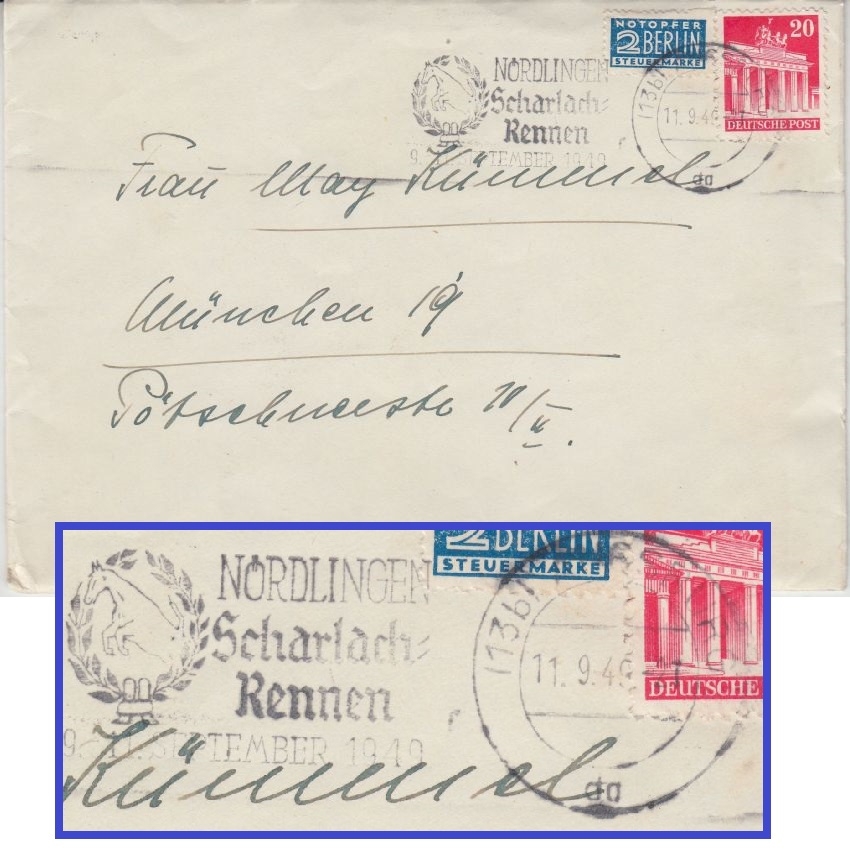 NOTOPFER
2 BERLIN
STEUERMARKE
20
DEUTSCHE POST
NÖRDLINGEN
Scharlach-
Rennen
9.-11. SEPTEMBER 1949
(13b)
11.9.49
da
Frau May Kümmel
München 19
Pötschnerstr 10/II.
2 BERLIN
STEUERMARKE
NÖRDLINGEN
Scharlach-
Rennen
9.-11. SEPTEMBER 1949
(13b)
11.9.49
DEUTSCHE
da
Kümmel